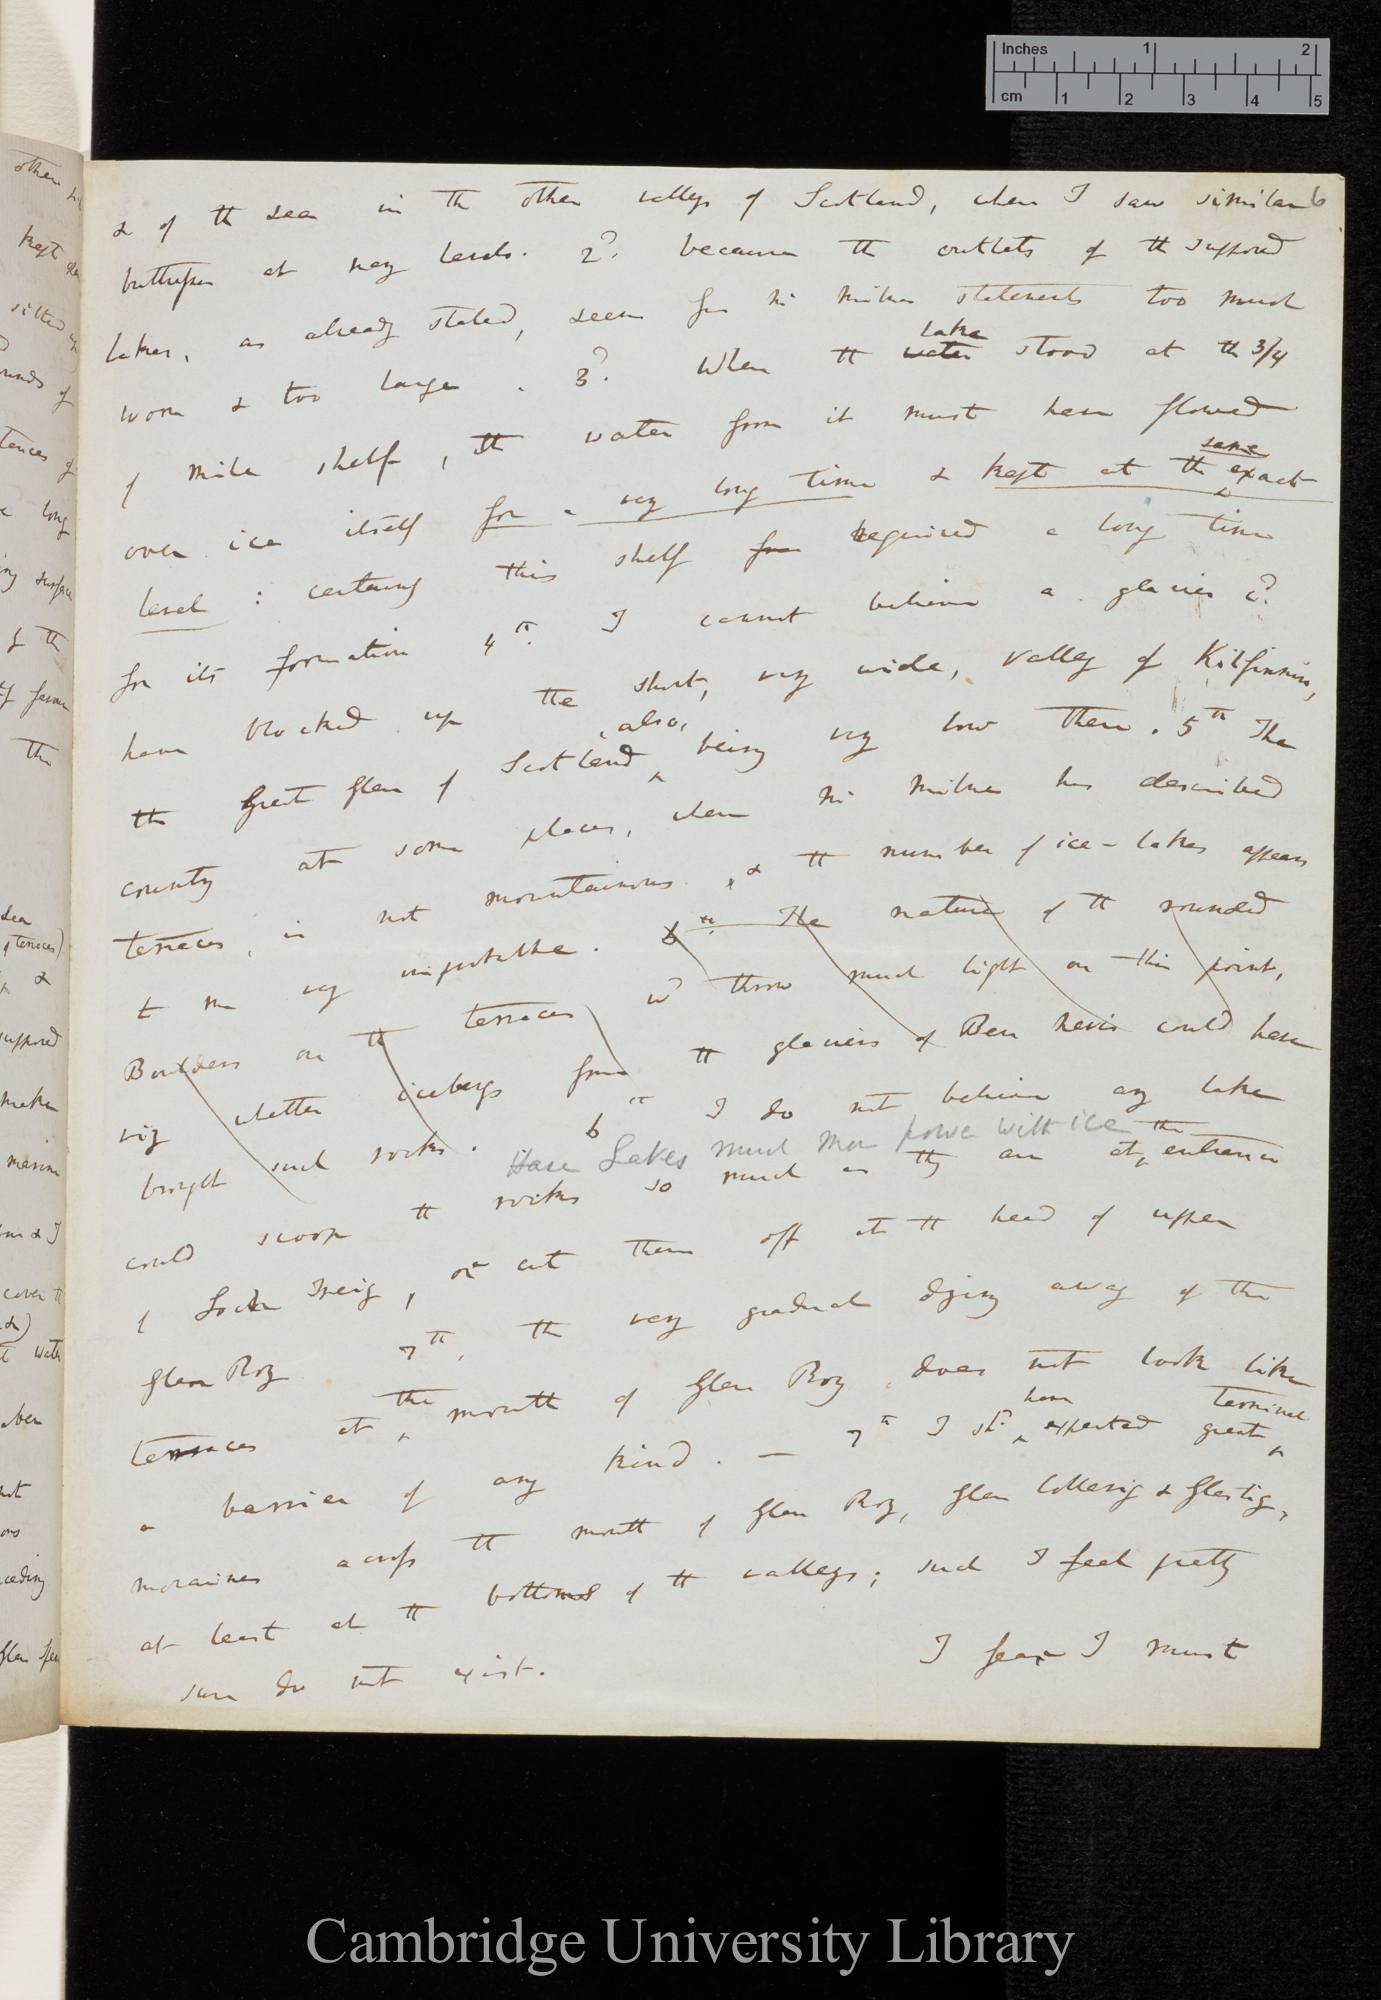 6
& of the sea in the other valleys of Scotland, where I saw similar
buttresses at many levels. 2d. because the outlets of the supposed
lakes, as already stated, seem from Mr Milnes statements too much
lake
worn & too large. 3d. When the water stood at the 3/4
of mile shelf, the water from it must have flowed
same
over ice itself for a very long time & kept at the exact
level: certainly this shelf from required a long time
for its formation 4th. I cannot believe a glacier cd.
have blocked up the short, very wide, valley of Kilfinnin,
also,
the Great Glen of Scotland being very low there. 5th The
county at some places, where Mr Milne has described
terraces, is not mountainous, & the number of ice-lakes appears
to me very improbable. 6th. The nature of the rounded
Boulders on the terraces wd throw much light on this point,
viz whether icebergs from the glaciers of Ben Nevis could have
brought such rocks. 6th I do not believe any lake
Have Lakes much more power with ice
the
could scoop the rocks so much as they are at entrance
of Loch Treig, or cut them off at the head of upper
Glen Roy 7th, the very gradual dying away of the
terraces at the mouth of Glen Roy, does not look like
have terminal
a barrier of any kind. — 7th I shd. expected great
moraines across the mouth of Glen Roy, Glen Collarig & Glastig,
at least at the bottoms of the valleys; such I feel pretty
sure do not exist. I fear I must
Inches 1 2
cm 1 2 3 4 5
Cambridge University Library